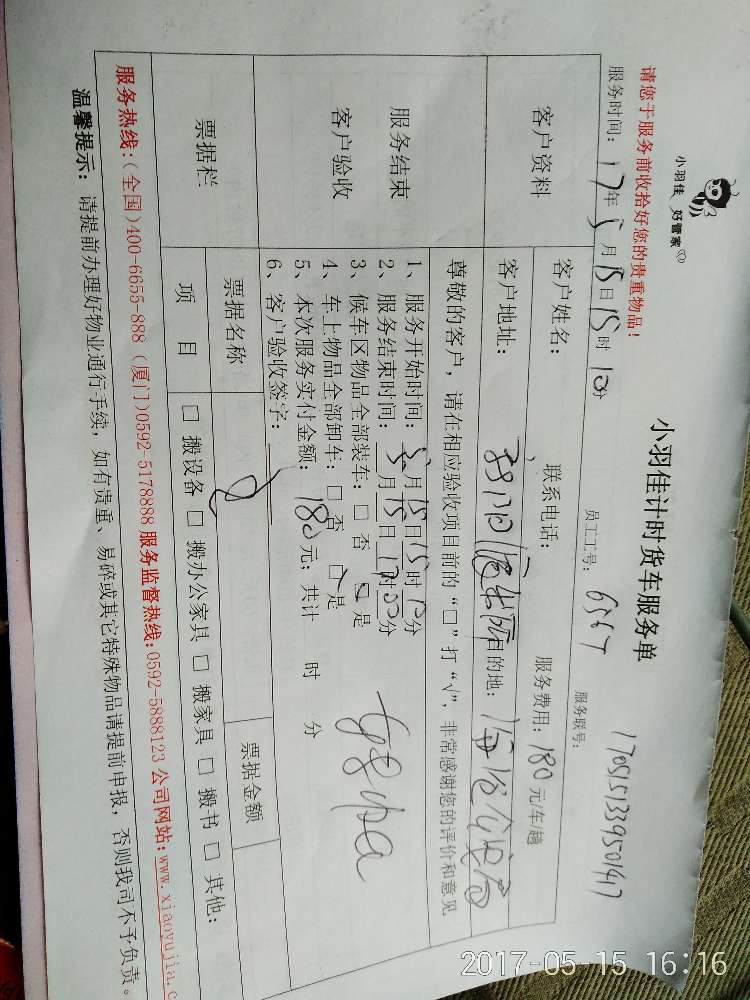 小羽佳 好管家
小羽佳计时货车服务单
服务联号: 17051513395011417
请您于服务前收拾好您的贵重物品!
服务时间: 17年5月15日15时10分 员工工号: 6567
客户资料
客户姓名: 联系电话: 服务费用: 180元/车/趟
客户地址: 目的地:
服务结束
客户验收
尊敬的客户, 请在相应验收项目前的“口”打“√”, 非常感谢您的评价和意见
1、服务开始时间: 5月15日15时10分
2、服务结束时间: 5月15日17时00分
3、候车区物品全部装车: □否 □是
4、车上物品全部卸车: □否 □是
5、本次服务实付金额: 180元; 共计 时 分
6、客户验收签字:
票据栏
票据名称 票据金额
项目 □搬设备 □搬办公家具 □搬家具 □搬书 □其他:
服务热线:(全国)400-6655-888 (厦门)0592-5178888 服务监督热线:0592-5888123 公司网站:www.xiaoyujia.c
温馨提示: 请提前办理好物业通行手续, 如有贵重、易碎或其它特殊物品请提前申报, 否则我司不予负责。
2017-05-15 16:16